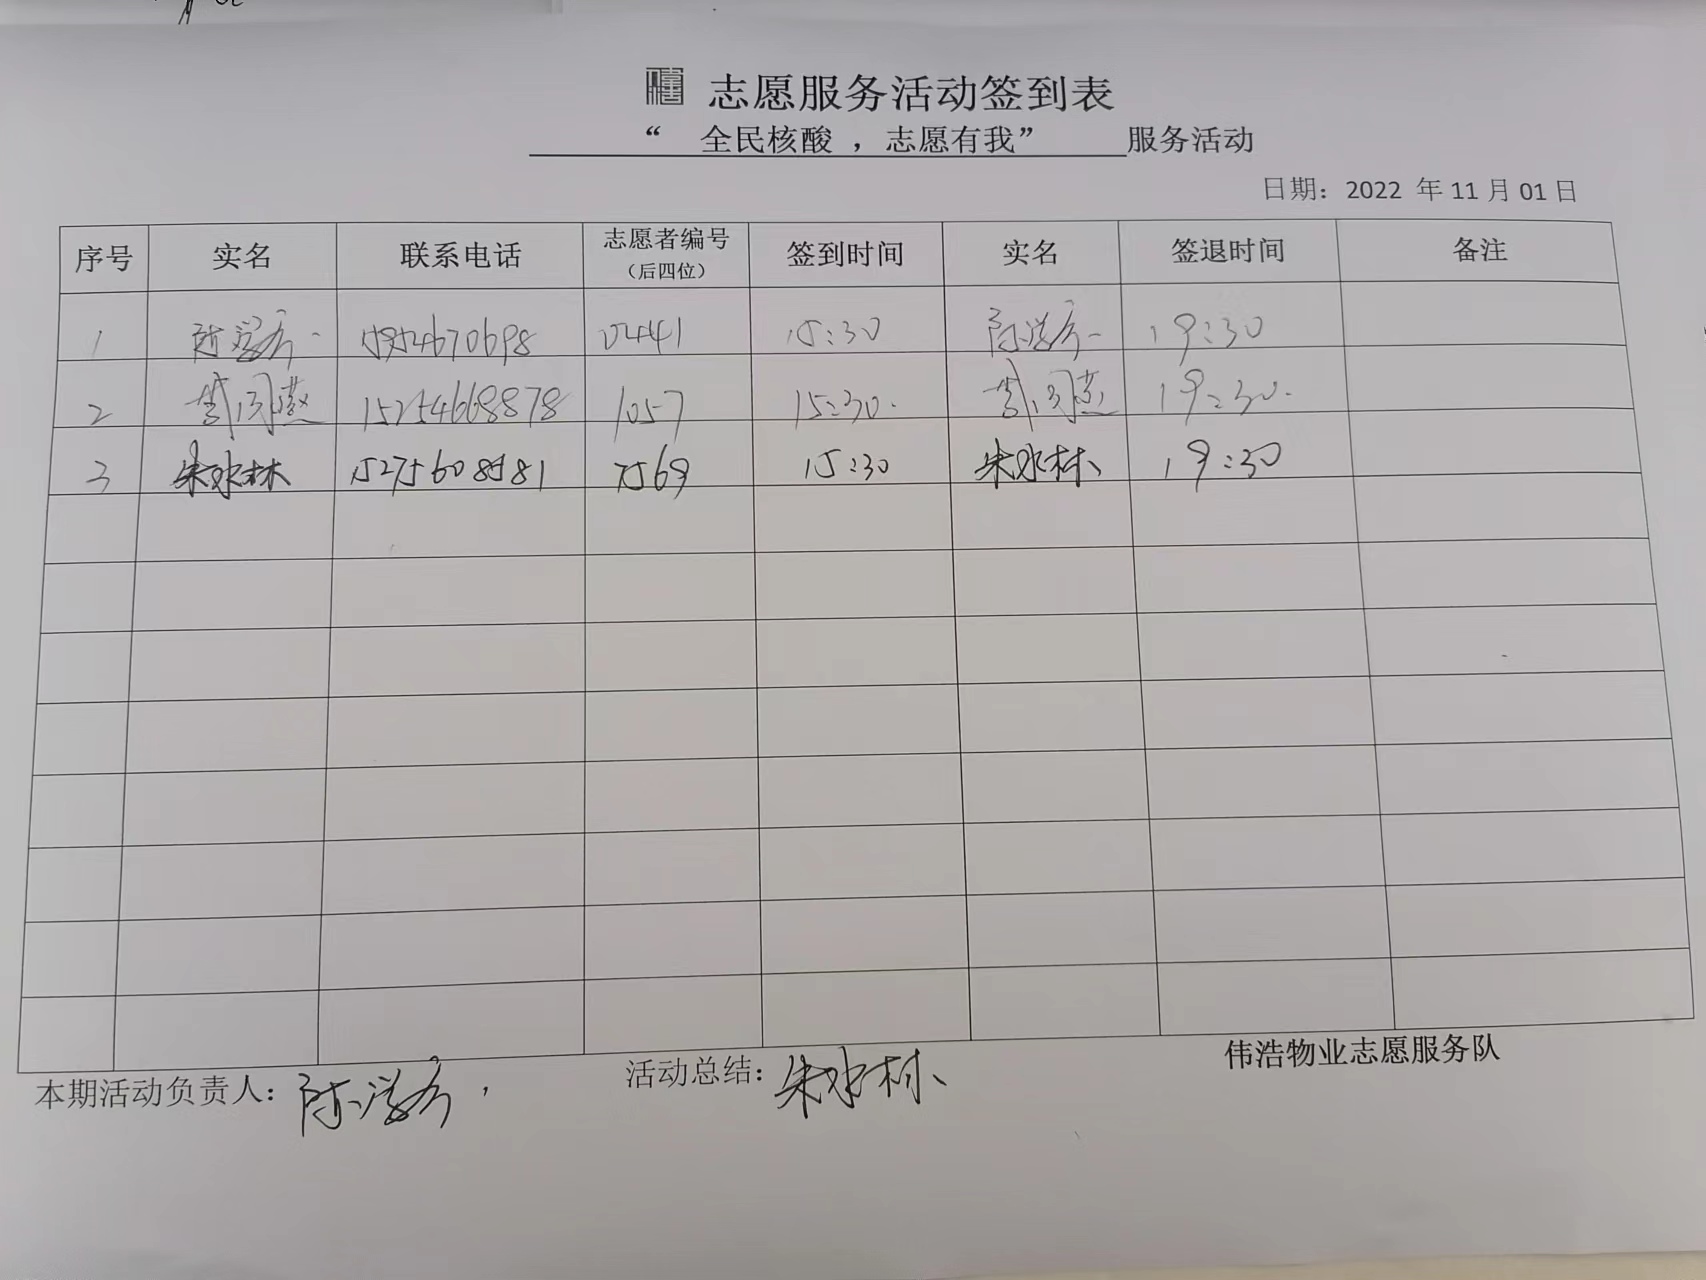 志愿服务活动签到表
“ 全民核酸 ，志愿有我” 服务活动
日期：2022 年 11 月 01 日
序号 实名 联系电话 志愿者编号（后四位） 签到时间 实名 签退时间 备注
1 15:30 19:30
2 15254668878 1057 15:30. 19:30.
3 朱水林 15275608581 7569 15:30 朱水林 19:30
本期活动负责人： 活动总结：朱水林 伟浩物业志愿服务队